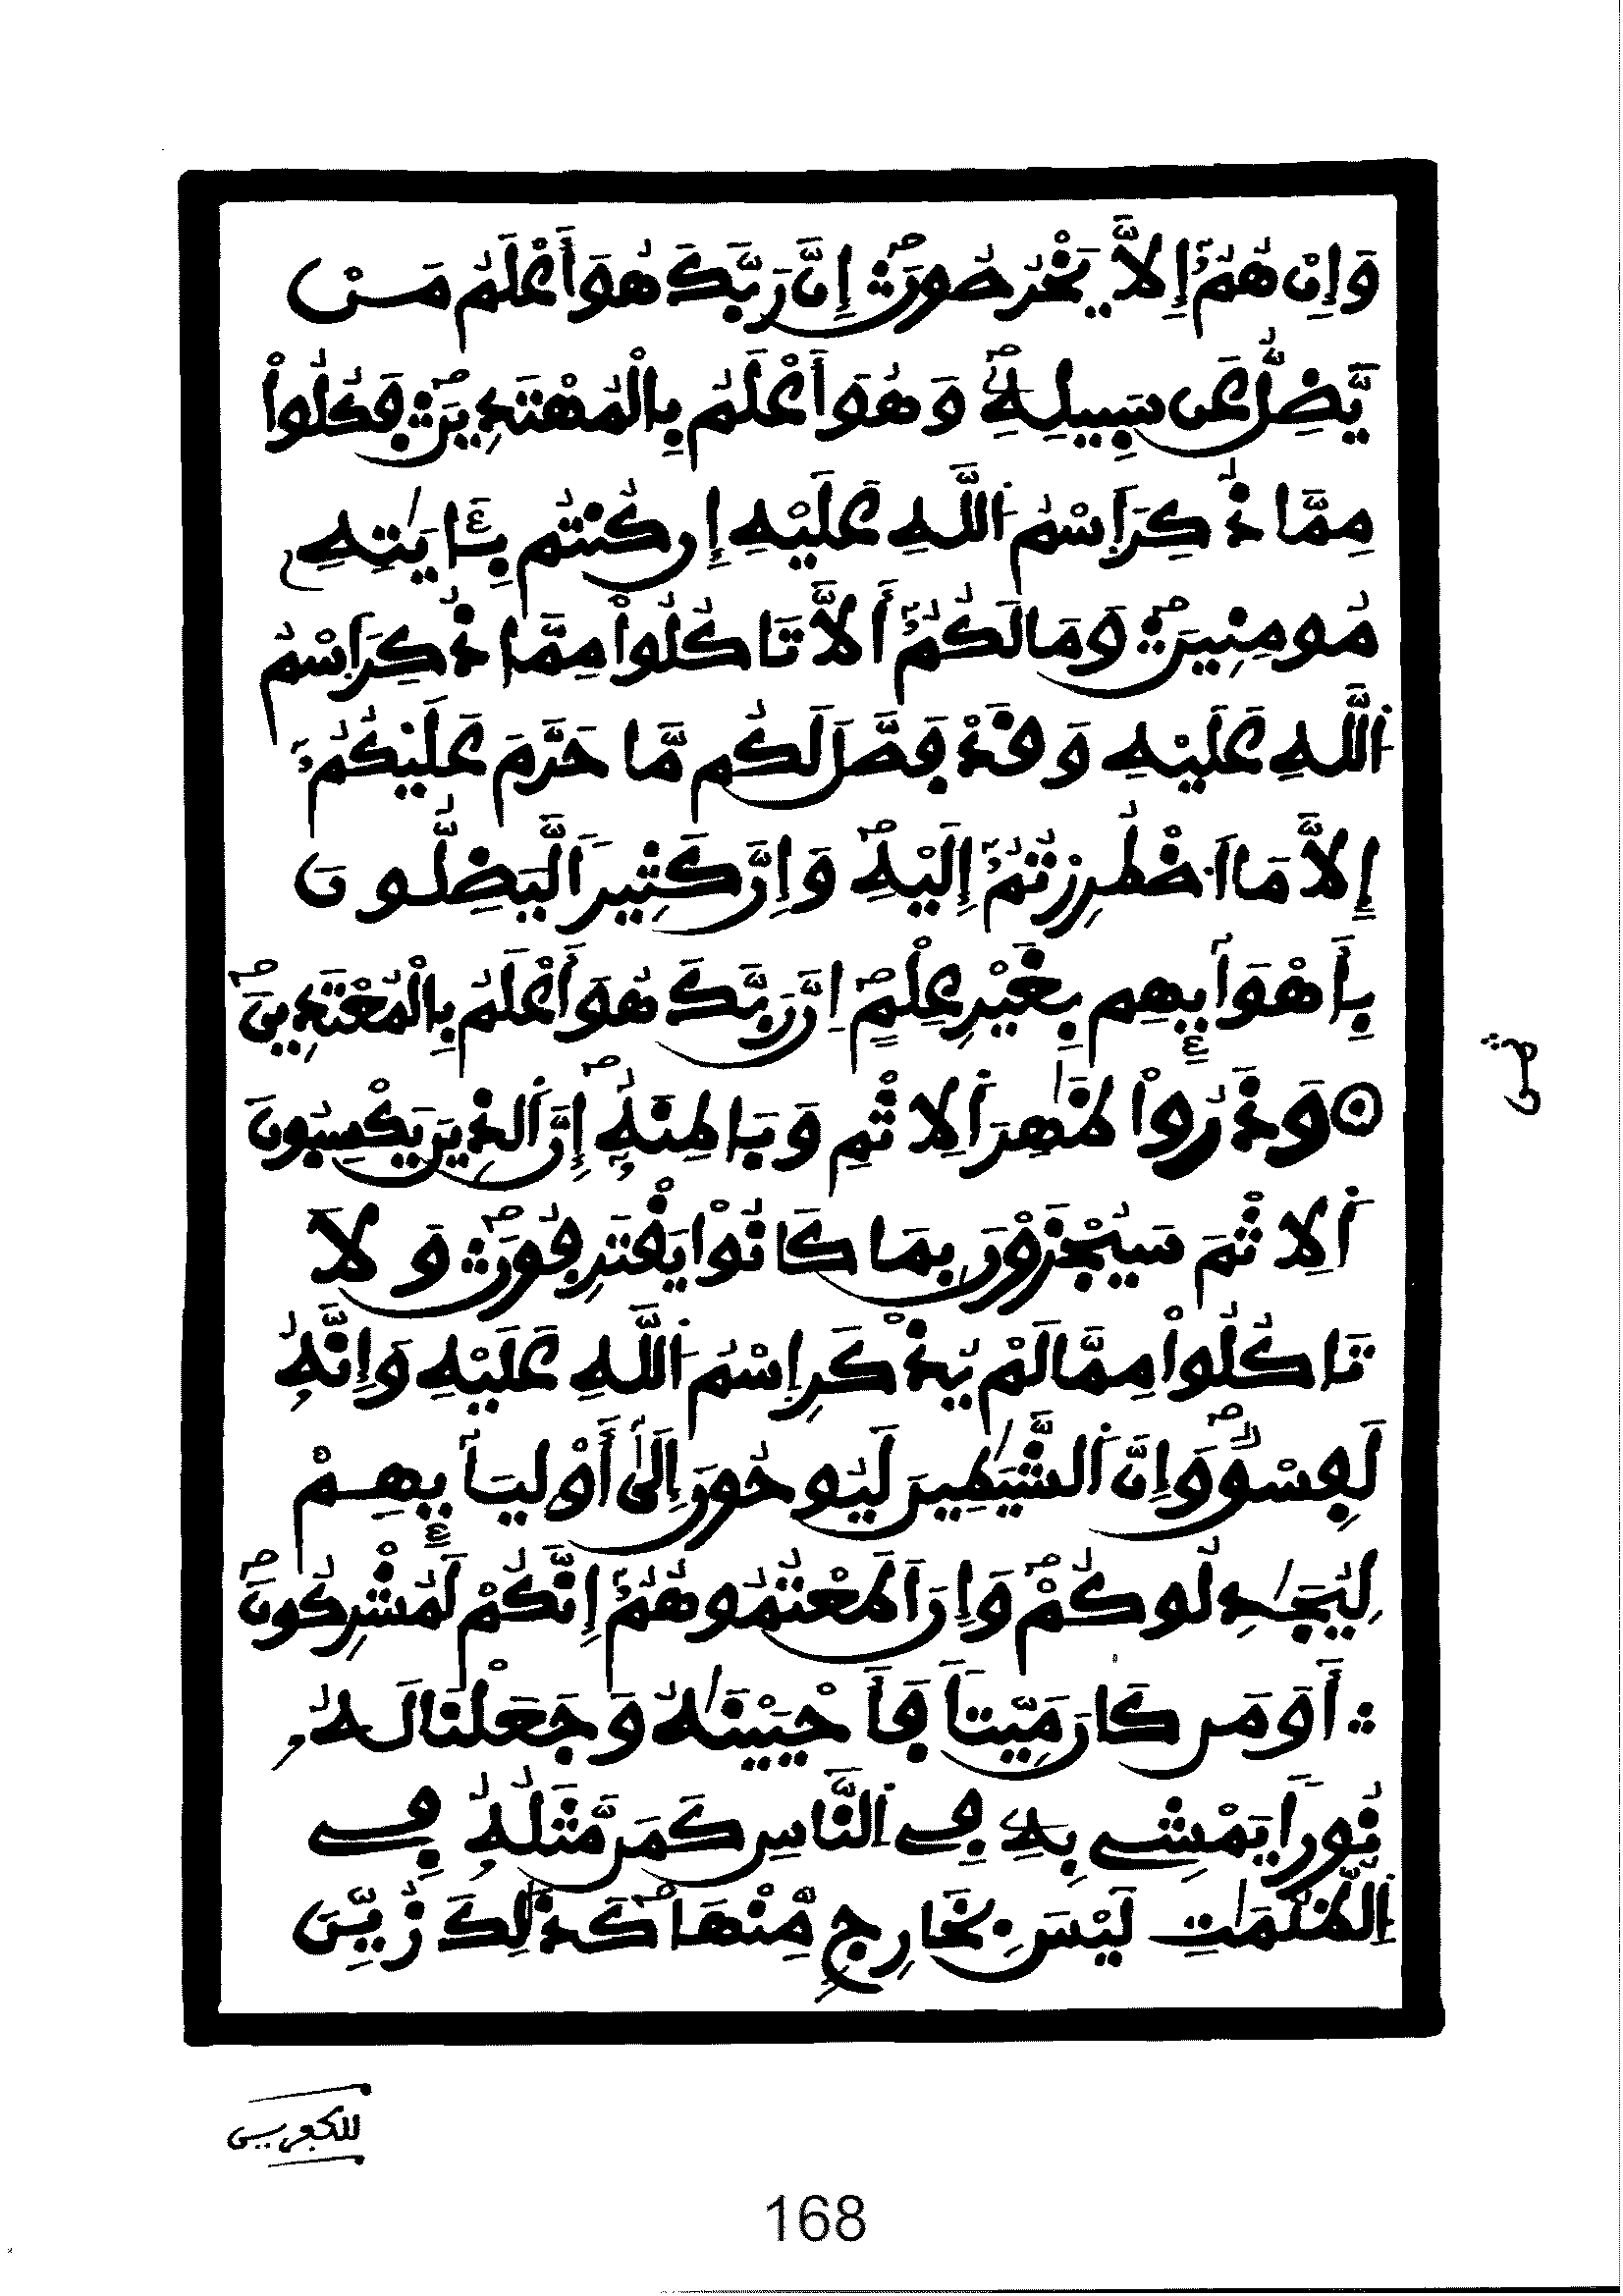 وَإِنْ هُمُۥ إِلَّا يَخْرُصُونَ إِنَّ رَبَّكَ هُوَ أَعْلَمُ مَنْ
يَّضِلُّ عَن سَبِيلِهِۦ وَهُوَ أَعْلَمُ بِالْمُهْتَدِينَ فَكُلُوا۟
مِمَّا ذُكِرَ اَسْمُ اُللَّهِ عَلَيْهِ إِن كُنتُم بِـَٔايَٰتِهِۦ
مُومِنِينَ وَمَا لَكُمُۥ أَلَّا تَاكُلُوا۟ مِمَّا ذُكِرَ اَسْمُ
اُللَّهِ عَلَيْهِ وَقَدْ فَصَّلَ لَكُم مَّا حَرَّمَ عَلَيْكُمُۥ
إِلَّا مَا اَضْطُرِرْتُمُۥ إِلَيْهِ وَإِنَّ كَثِيراً لَّيَضِلُّونَ
بِأَهْوَآئِهِم بِغَيْرِ عِلْمٍ اِنَّ رَبَّكَ هُوَ أَعْلَمُ بِالْمُعْتَدِينَ
وَذَرُوا۟ ظَٰهِرَ اَلِاثْمِ وَبَاطِنَهُۥ إِنَّ اَلذِينَ يَكْسِبُونَ
اَلِاثْمَ سَيُجْزَوْنَ بِمَا كَانُوا۟ يَقْتَرِفُونَ وَلَا
تَاكُلُوا۟ مِمَّا لَمْ يُذْكَرِ اِسْمُ اُللَّهِ عَلَيْهِ وَإِنَّهُۥ
لَفِسْقٌ وَإِنَّ اَلشَّيَٰطِينَ لَيُوحُونَ إِلَىٰ أَوْلِيَآئِهِمْ
لِيُجَٰدِلُوكُمْ وَإِنَ اَطَعْتُمُوهُمُۥ إِنَّكُمْ لَمُشْرِكُونَ
أَوَمَن كَانَ مَيِّتاً فَأَحْيَيْنَٰهُ وَجَعَلْنَا لَهُۥ
نُوراً يَمْشِے بِهِۦ فِے اِلنَّاسِ كَمَن مَّثَلُهُۥ فِے
اِلظُّلُمَٰتِ لَيْسَ بِخَارِجٍ مِّنْهَا كَذَٰلِكَ زُيِّنَ
ثمن
168